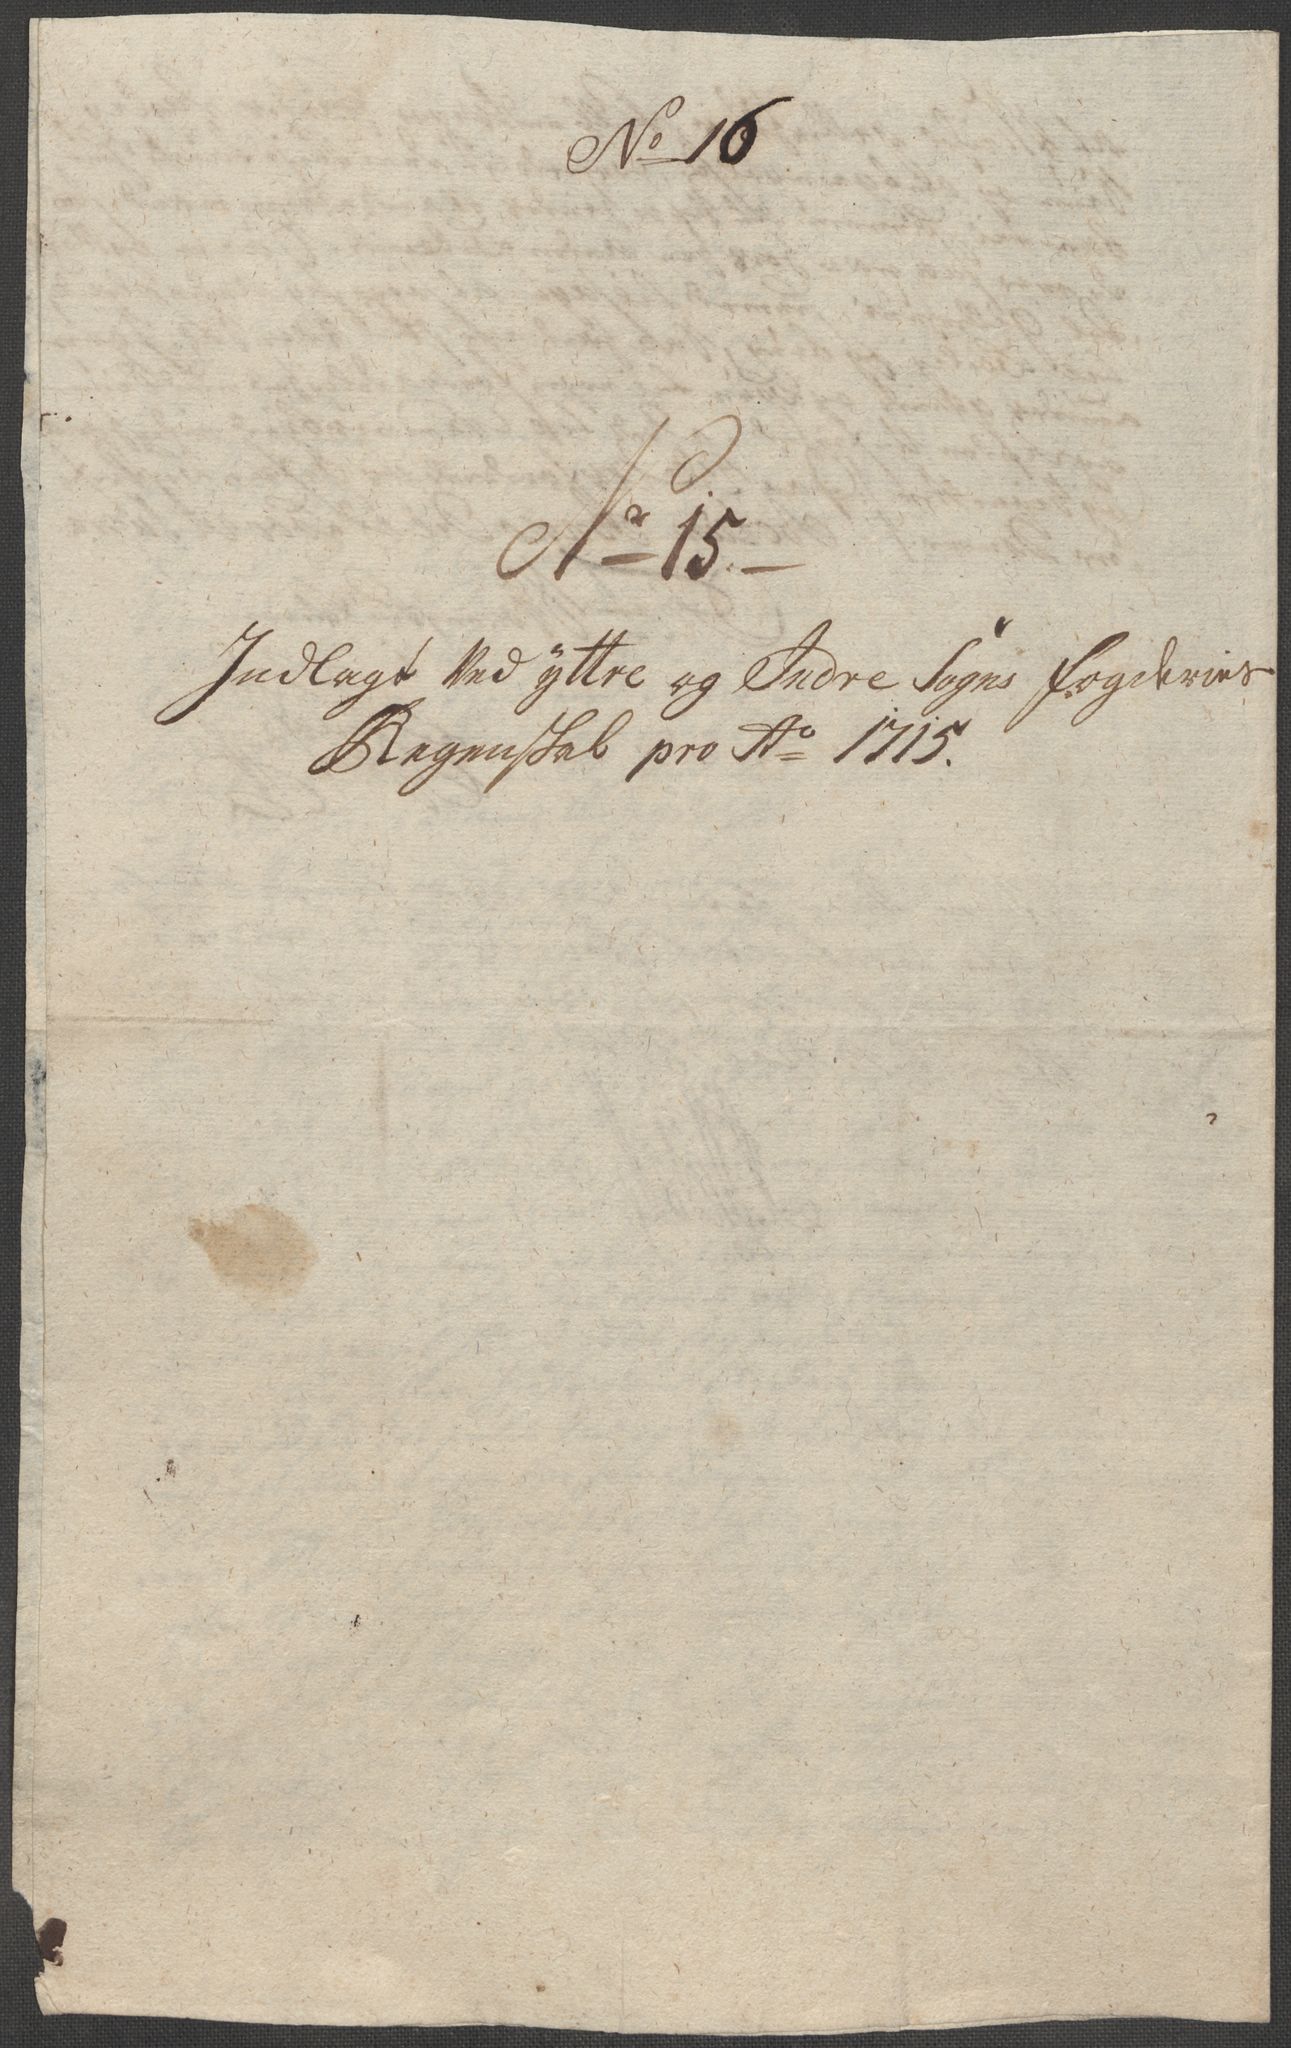 No 16
No 15.
Indlagt Ved Yttre og Indre Sogns fogderies
Regenskab pro Ao 1715.